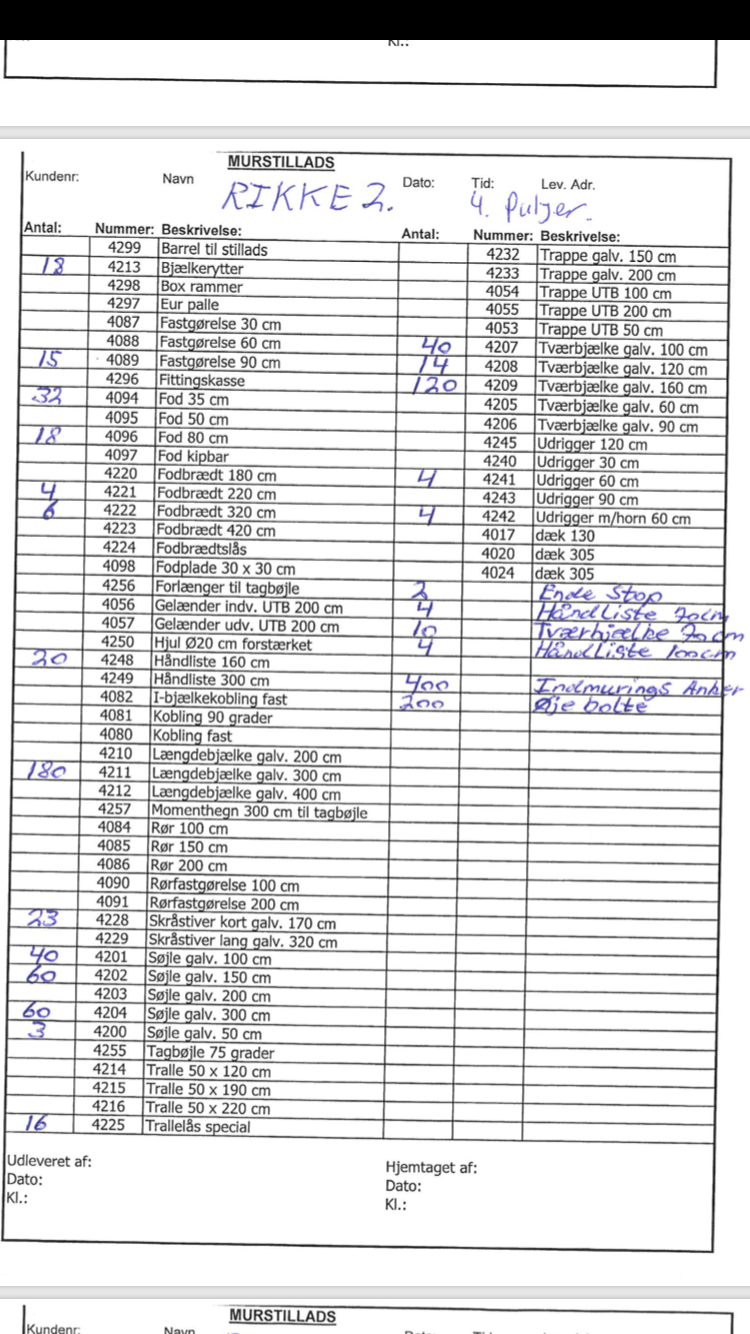 Kl.:
MURSTILLADS
Kundenr: Navn RIKKE 2. Dato: Tid: 4. Puljer. Lev. Adr.
Antal: Nummer: Beskrivelse:
4299 Barrel til stillads
18 4213 Bjælkerytter
4298 Box rammer
4297 Eur palle
4087 Fastgørelse 30 cm
4088 Fastgørelse 60 cm
15 4089 Fastgørelse 90 cm
4296 Fittingskasse
32 4094 Fod 35 cm
4095 Fod 50 cm
18 4096 Fod 80 cm
4097 Fod kipbar
4220 Fodbrædt 180 cm
4 4221 Fodbrædt 220 cm
6 4222 Fodbrædt 320 cm
4223 Fodbrædt 420 cm
4224 Fodbrædtslås
4098 Fodplade 30 x 30 cm
4256 Forlænger til tagbøjle
4056 Gelænder indv. UTB 200 cm
4057 Gelænder udv. UTB 200 cm
4250 Hjul Ø20 cm forstærket
20 4248 Håndliste 160 cm
4249 Håndliste 300 cm
4082 I-bjælkekobling fast
4081 Kobling 90 grader
4080 Kobling fast
4210 Længdebjælke galv. 200 cm
180 4211 Længdebjælke galv. 300 cm
4212 Længdebjælke galv. 400 cm
4257 Momenthegn 300 cm til tagbøjle
4084 Rør 100 cm
4085 Rør 150 cm
4086 Rør 200 cm
4090 Rørfastgørelse 100 cm
4091 Rørfastgørelse 200 cm
23 4228 Skråstiver kort galv. 170 cm
4229 Skråstiver lang galv. 320 cm
40 4201 Søjle galv. 100 cm
60 4202 Søjle galv. 150 cm
4203 Søjle galv. 200 cm
60 4204 Søjle galv. 300 cm
3 4200 Søjle galv. 50 cm
4255 Tagbøjle 75 grader
4214 Tralle 50 x 120 cm
4215 Tralle 50 x 190 cm
4216 Tralle 50 x 220 cm
16 4225 Trallelås special
Antal: Nummer: Beskrivelse:
4232 Trappe galv. 150 cm
4233 Trappe galv. 200 cm
4054 Trappe UTB 100 cm
4055 Trappe UTB 200 cm
4053 Trappe UTB 50 cm
40 4207 Tværbjælke galv. 100 cm
14 4208 Tværbjælke galv. 120 cm
120 4209 Tværbjælke galv. 160 cm
4205 Tværbjælke galv. 60 cm
4206 Tværbjælke galv. 90 cm
4245 Udrigger 120 cm
4240 Udrigger 30 cm
4 4241 Udrigger 60 cm
4243 Udrigger 90 cm
4 4242 Udrigger m/horn 60 cm
4017 dæk 130
4020 dæk 305
4024 dæk 305
2 Ende Stop
4 Håndliste 70cm
10 Tværbjælke 70cm
4 Håndliste 100cm
400 Indmurings Anker
200 Øje bolte
Udleveret af:
Dato:
Kl.:
Hjemtaget af:
Dato:
Kl.:
MURSTILLADS
Kundenr: Navn